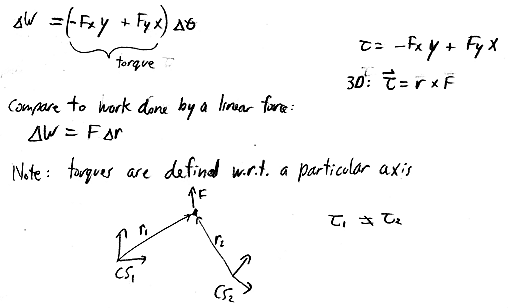 ΔW = (-Fx y + Fy x) Δθ
torque
τ = -Fx y + Fy x
3D: τ⃗ = r × F
Compare to work done by a linear force:
ΔW = F Δr
Note: torques are defined w.r.t. a particular axis
F
r1
r2
τ1 ≠ τ2
CS1
CS2